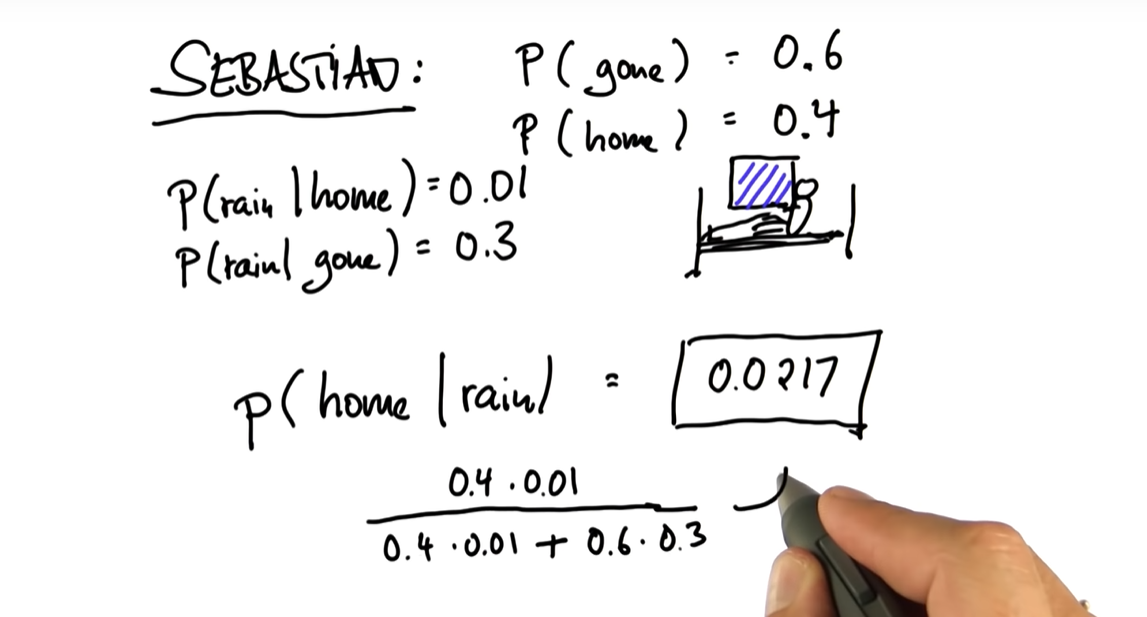 SEBASTIAN:
P(gone) = 0.6
P(home) = 0.4
P(rain|home) = 0.01
P(rain|gone) = 0.3
P(home|rain) = 0.0217
0.4 · 0.01
0.4 · 0.01 + 0.6 · 0.3